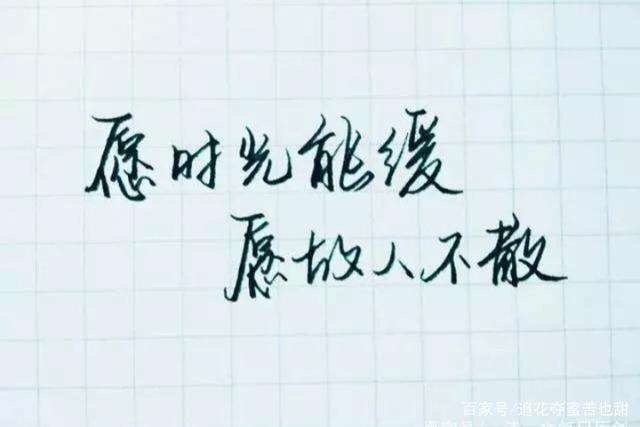 愿时光能缓
愿故人不散
百家号/追花夺蜜苦也甜